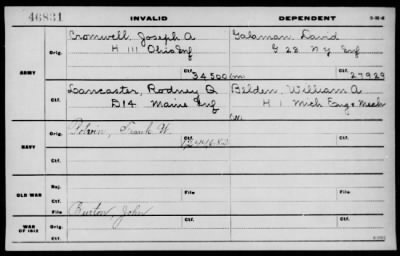 46831 INVALID DEPENDENT
Bromwell, Joseph A Galaman, David
Orig. H 111 Ohio Inf Orig. G 28 N Y Inf
ARMY
Ctf. 34500 Ctf. 27929
Lancaster, Rodney Q Belden, William A
D 14 Maine Inf H 1 Mich Eng & Mech
Ctf.
Frank W.
Orig. Orig.
NAVY
Ctf. Ctf.
Rej. File
OLD WAR
Ctf. File File
Burton, John
WAR OF 1812 Orig. Ctf. Orig. Ctf.